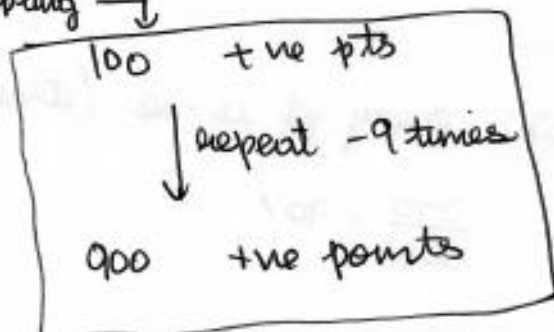 100 +ve pts
repeat - 9 times
900 +ve points